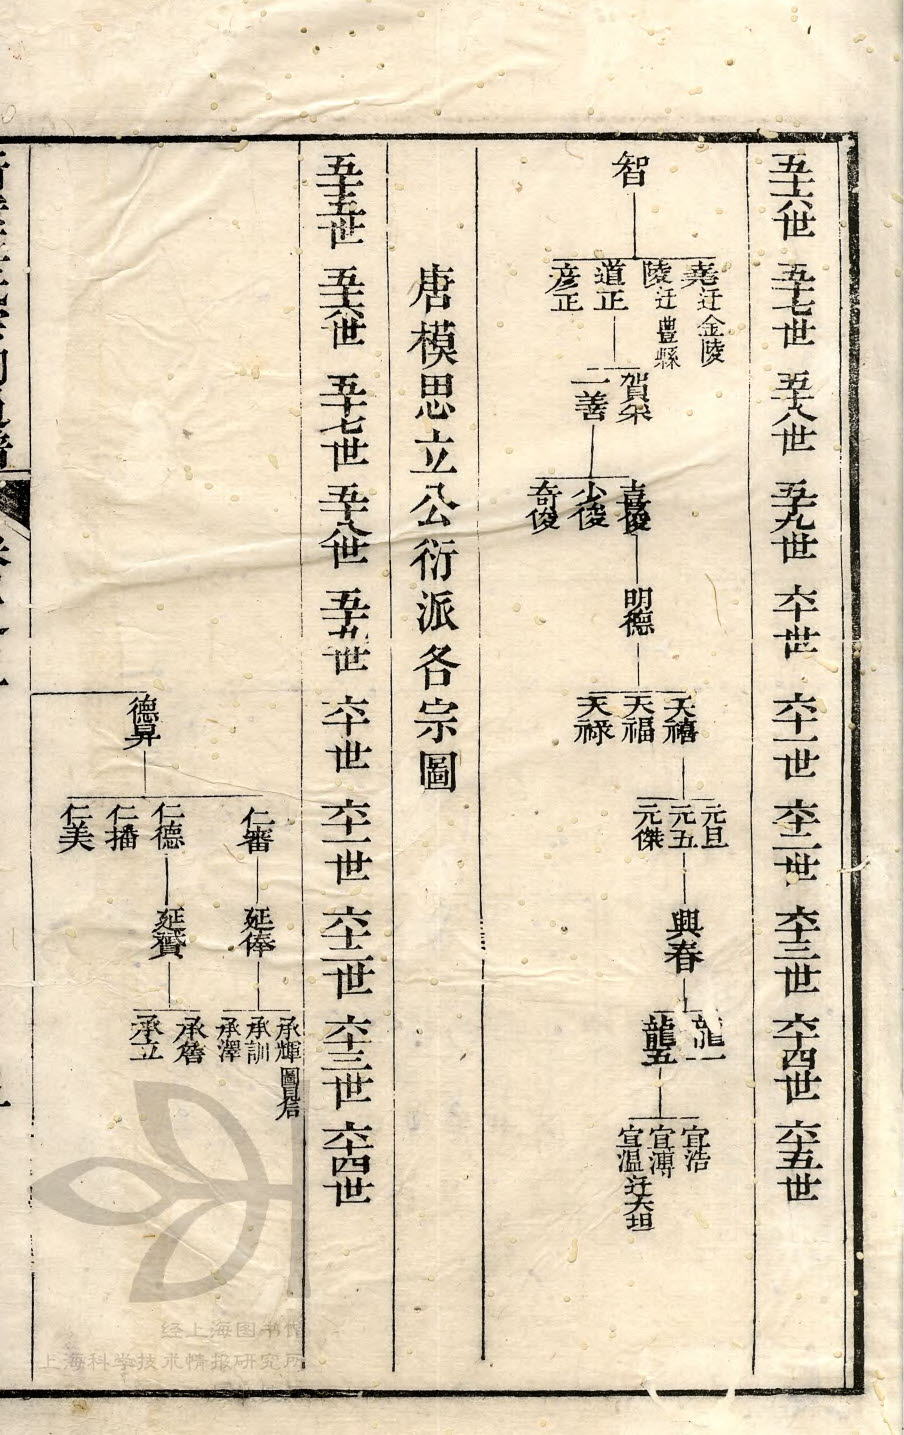 五十六世 五十七世 五十八世 五十九世 六十世 六十一世 六十二世 六十三世 六十四世 六十五世
智
堯 迁金陵
陵 迁豐縣
道正
彦正
賀
二善
喜俊
少俊
奇俊
明德
天禧
天福
天祿
元旦
元五
元傑
興春
龍一
龍五
宣浩
宣溥
宣溫 迁大坦
唐模思立公衍派各宗圖
五十五世 五十六世 五十七世 五十八世 五十九世 六十世 六十一世 六十二世 六十三世 六十四世
德昇
仁審
仁德
仁播
仁美
延俸
延贇
承輝 圖見后
承訓
承澤
承詹
承立
经上海图书馆
上海科学技术情报研究所